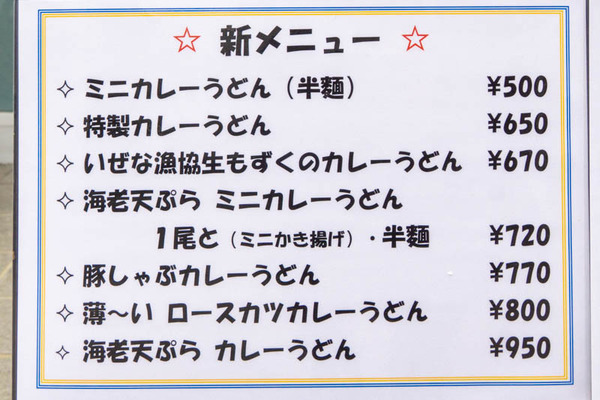 ☆ 新メニュー ☆
✧ ミニカレーうどん（半麺） ¥500
✧ 特製カレーうどん ¥650
✧ いぜな漁協生もずくのカレーうどん ¥670
✧ 海老天ぷら ミニカレーうどん
1尾と（ミニかき揚げ）・半麺 ¥720
✧ 豚しゃぶカレーうどん ¥770
✧ 薄〜い ロースカツカレーうどん ¥800
✧ 海老天ぷら カレーうどん ¥950